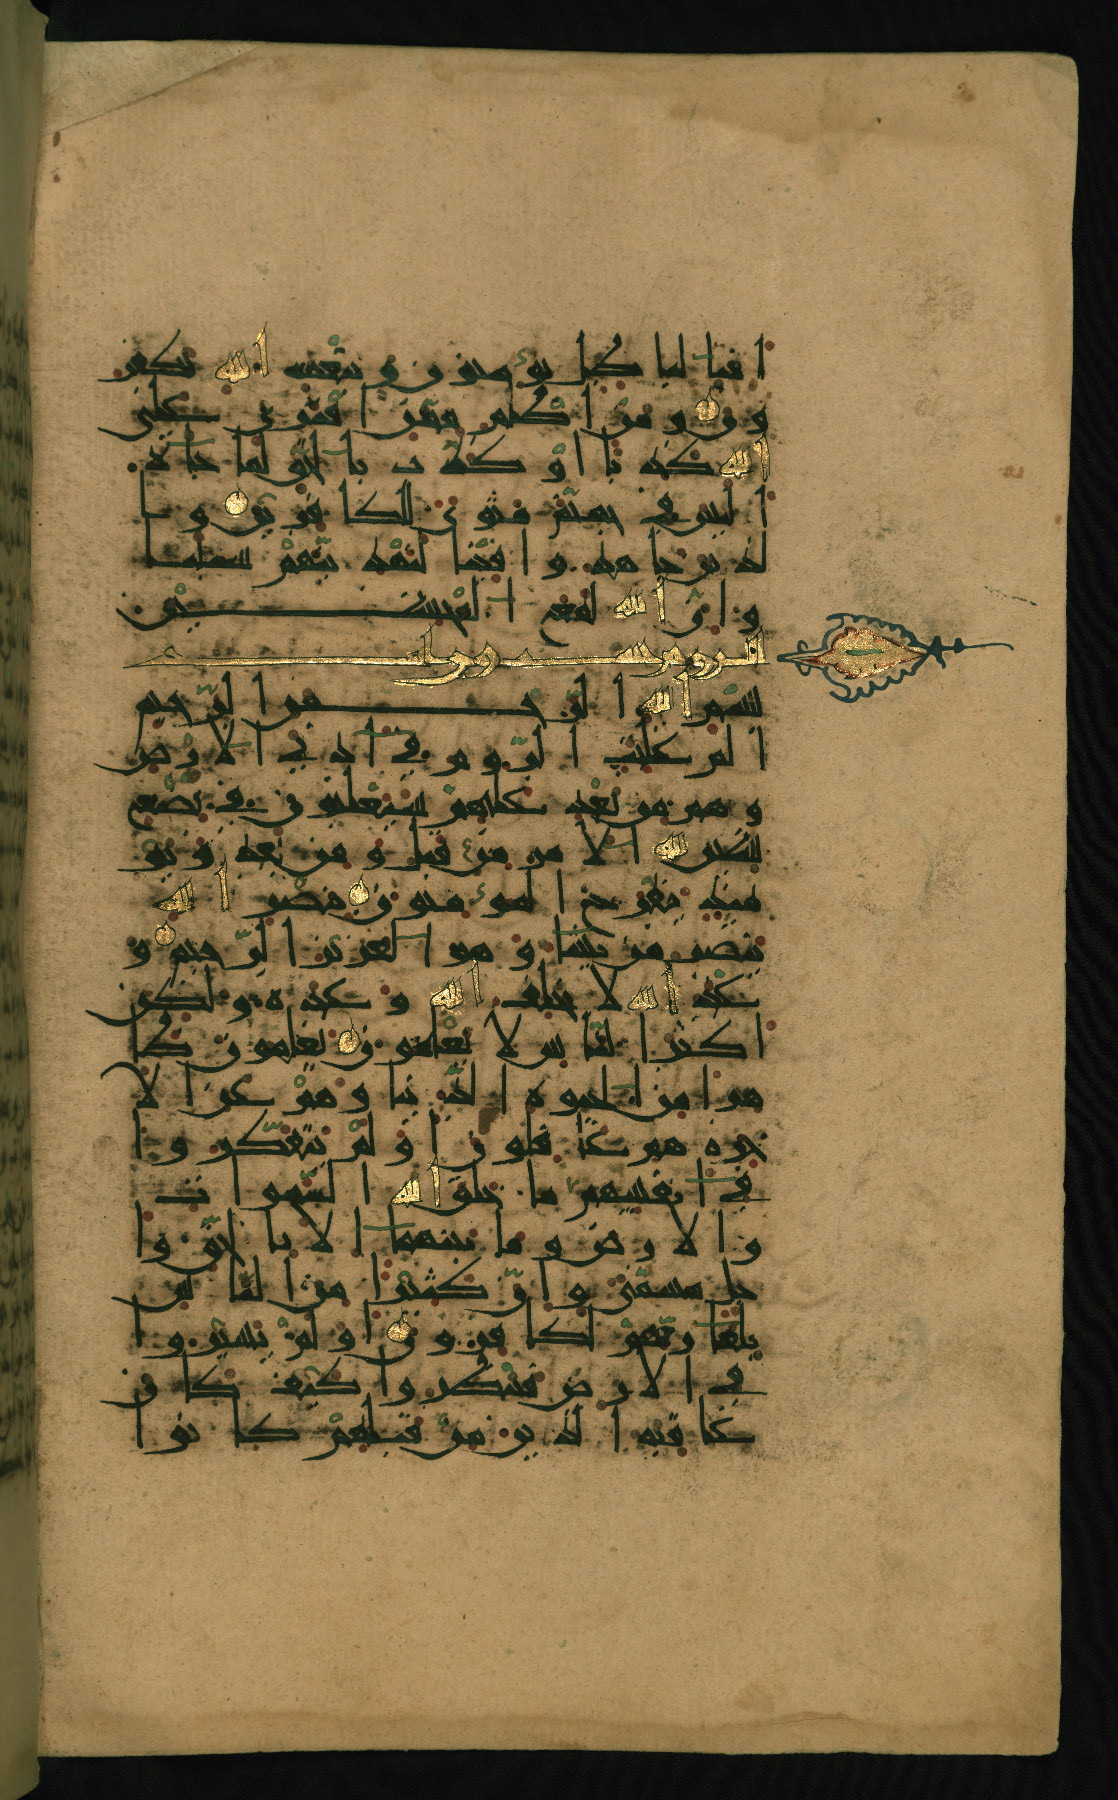 افبالباطل يؤمنون و بنعمة الله يكفر
ون و من اظلم ممن افترى على
الله كذبا او كذب بالحق لما جاءه
اليس في جهنم مثوى للكافرين و ا
لذين جاهدوا فينا لنهدينهم سبلنا
و ان الله لمع المحسنين
الروم
بسم الله الرحمن الرحيم
الم غلبت الروم في ادنى الارض
و هم من بعد غلبهم سيغلبون في بضع
سنين لله الامر من قبل و من بعد و يو
مئذ يفرح المؤمنون بنصر الله
ينصر من يشا و هو العزيز الرحيم و
عد الله لا يخلف الله وعده و لكن
اكثر الناس لا يعلمون يعلمون ظا
هرا من الحيوة الدنيا و هم عن الا
خرة هم غافلون او لم يتفكروا
في انفسهم ما خلق الله السموات
و الارض و ما بينهما الا بالحق و ا
جل مسمى و ان كثيرا من الناس
بلقا ربهم لكافرون او لم يسيروا
في الارض فينظروا كيف كان
عاقبة الذين من قبلهم كانوا